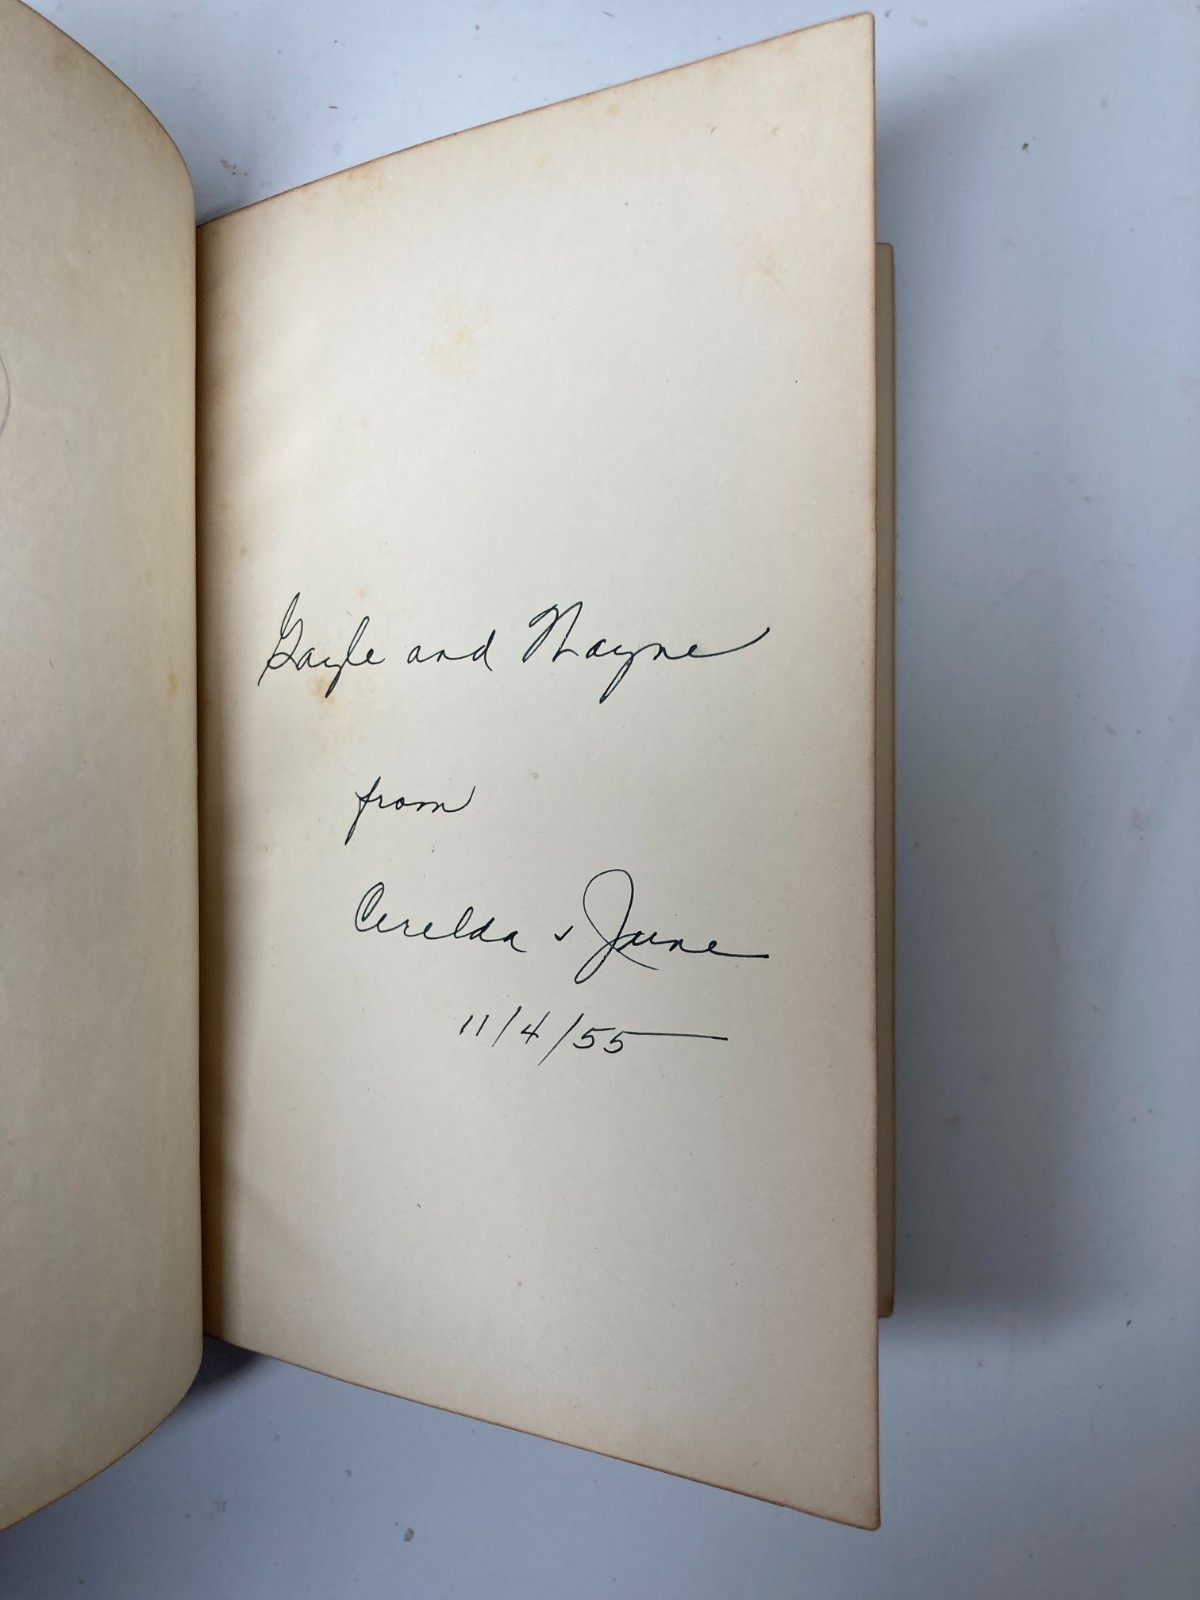 Gayle and Wayne
from
Cerelda & June
11/4/55